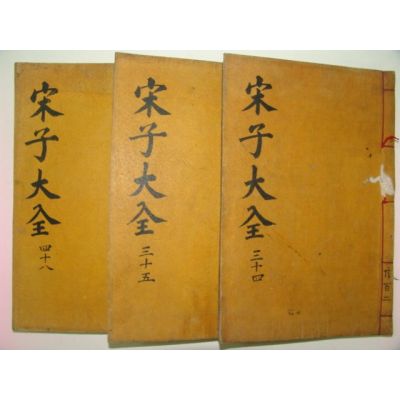 宋子大全
三十四
宋子大全
三十五
宋子大全
四十八